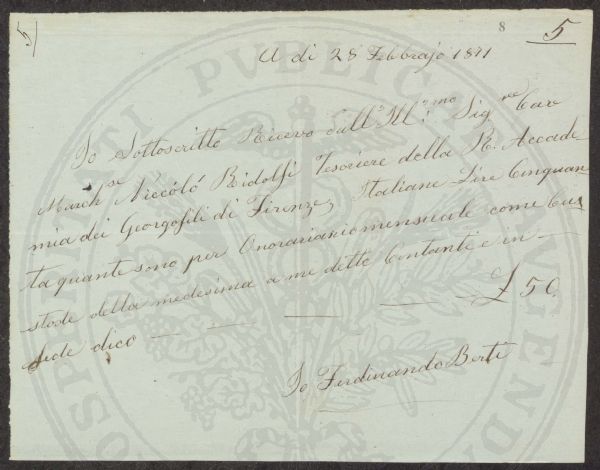 5
8
5
A di 28 Febbrajo 1871
Io Sottoscritto Ricevo dall' Ill.mo Sig.re Cav
March.se Niccoló Ridolfi Tesoriere della R. Accade
mia dei Georgofili di Firenze, Italiane Lire Cinquan
ta quante sono per Onorariario mensuale come Cu
stode della medesima a me dette Contanti e in
fede dico — — — — £ 50.
Io Ferdinando Berti
PROSPERITATI PUBLICAE AUGENDAE